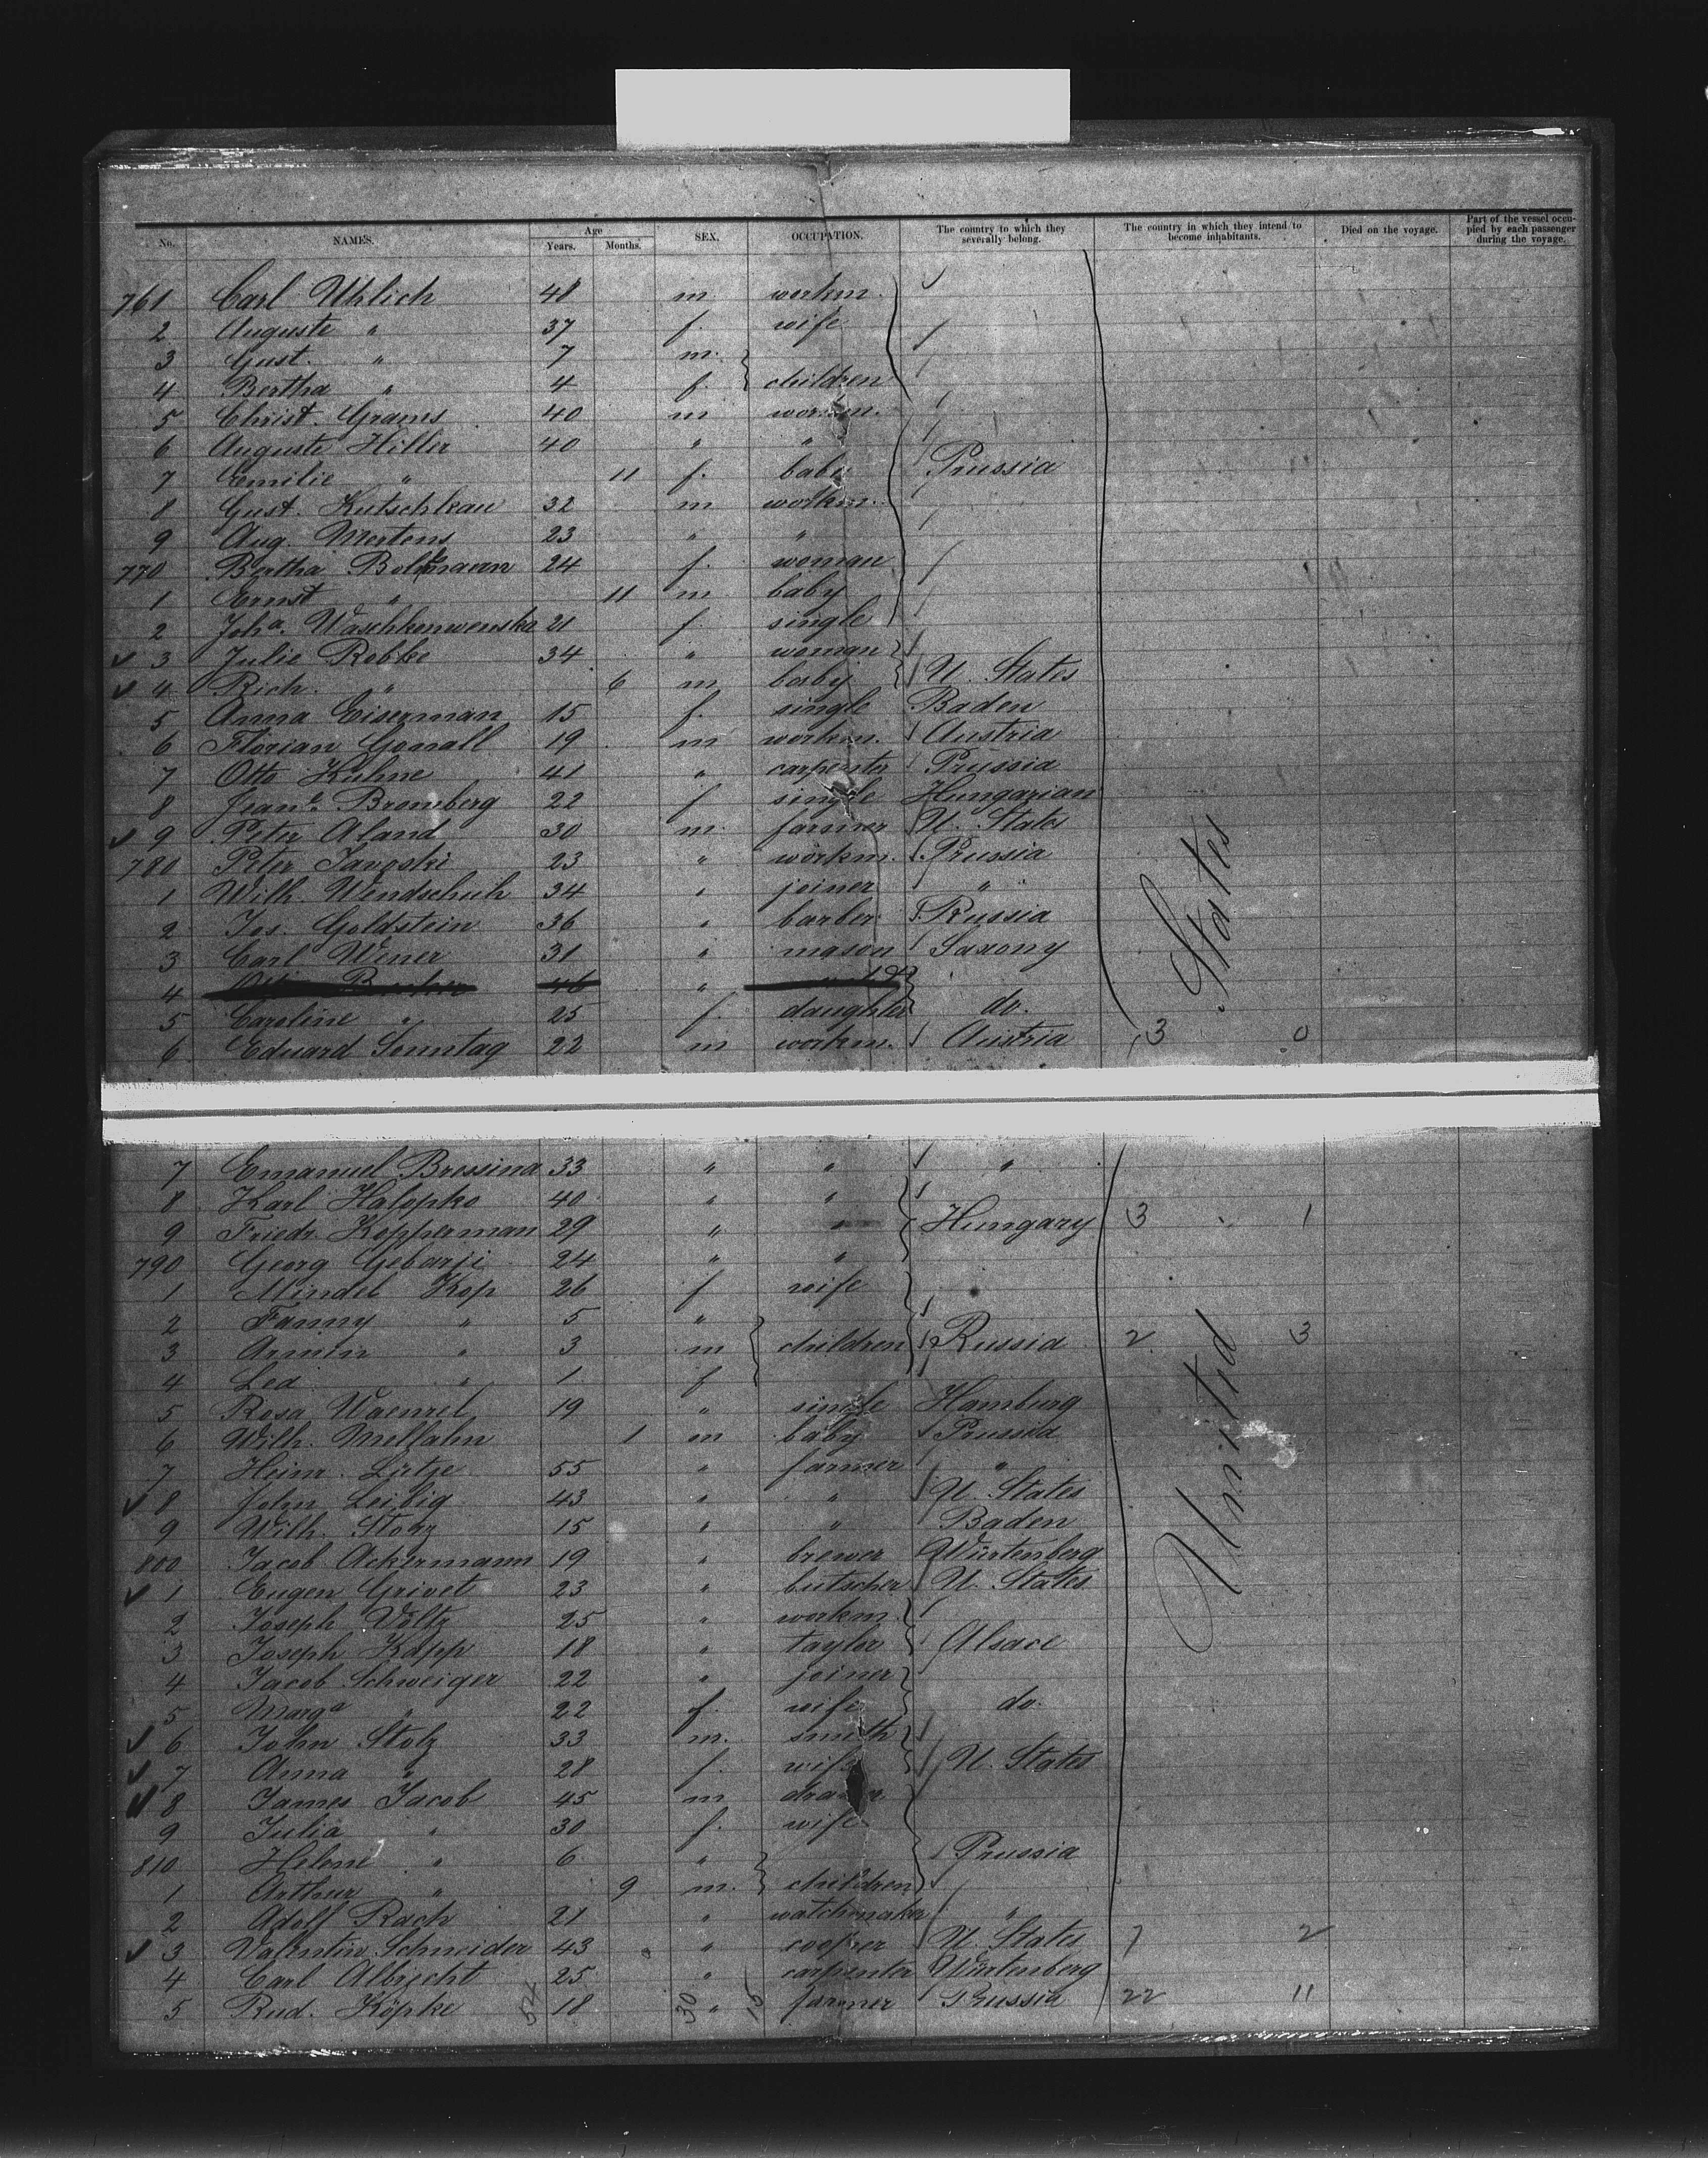 No. NAMES. Age Years. Months. SEX. OCCUPATION. The country to which they severally belong. The country in which they intend to become inhabitants. Died on the voyage. Part of the vessel occupied by each passenger during the voyage.
761 Carl Uhlich 48 m workm.
2 Auguste " 37 f. wife
3 Gust. " 7 m.
4 Bertha " 4 f. children
5 Christ. Grams 40 m workm.
6 Auguste Hiller 40 " "
7 Emilie " 11 f. baby Prussia
8 Gust. Kutschkau 32 m workm.
9 Aug. Mertens 23 " "
770 Bertha 24 f. woman
1 Ernst " 11 m baby
2 Joha. Waschkenwenska 21 f. single
3 Julie Robke 34 " woman
4 Rich. " 6 m baby U. States
5 Anna Eiserman 15 f. single Baden
6 Florian Gonall 19 m workm. Austria
7 Otto Kuhne 41 " carpenter Prussia
8 Jeane. Bromberg 22 f single Hungarian
9 Peter Aland 30 m. farmer U. States
780 Peter Savoski 23 " workm. Prussia
1 Wilh. Wendschuh 34 " joiner "
2 Jos. Goldstein 36 " barber Russia
3 Carl Wener 31 " mason Saxony
4 46 "
5 Caroline " 25 f. daughter do.
6 Eduard Sonntag 22 m workm. Austria 13 0
7 Emanuel Bressina 33 " " "
8 Karl Halopko 40 " "
9 Friedr. Kopperman 29 " " Hungary 3 1
790 Georg Gebarji 24 " "
1 Mindel Kop 26 f wife
2 Fanny " 5 "
3 Armin " 3 m children Russia 2 3
4 Lea " 1 f
5 Rosa Waenzel 19 " single Hamburg
6 Wilh. Mellahn 1 m baby Prussia
7 Heinr. Lütje 55 " farmer "
8 John Leibig 43 " " U. States
9 Wilh. Storz 15 " " Baden
800 Jacob Ackermann 19 " brewer Würtenberg
1 Eugen Grivet 23 " butscher U. States
2 Joseph Voltz 25 " workm.
3 Joseph Kopp 18 " taylor Alsace
4 Jacob Schweiger 22 " joiner
5 Marga " 22 f. wife do.
6 John Stolz 33 m. smith
7 Anna " 28 f. wife U. States
8 James Jacob 45 m
9 Julia " 30 f. wife
810 Helene " 6 " Prussia
1 Arthur " 9 m. children
2 Adolf Rach 21 " watchmaker "
3 Valentin Schneider 43 " cooper U. States 7 2
4 Carl Albrecht 25 " carpenter Würtenberg
5 Rud. Köpke 18 " farmer Prussia 22 11
United States
54 30 15